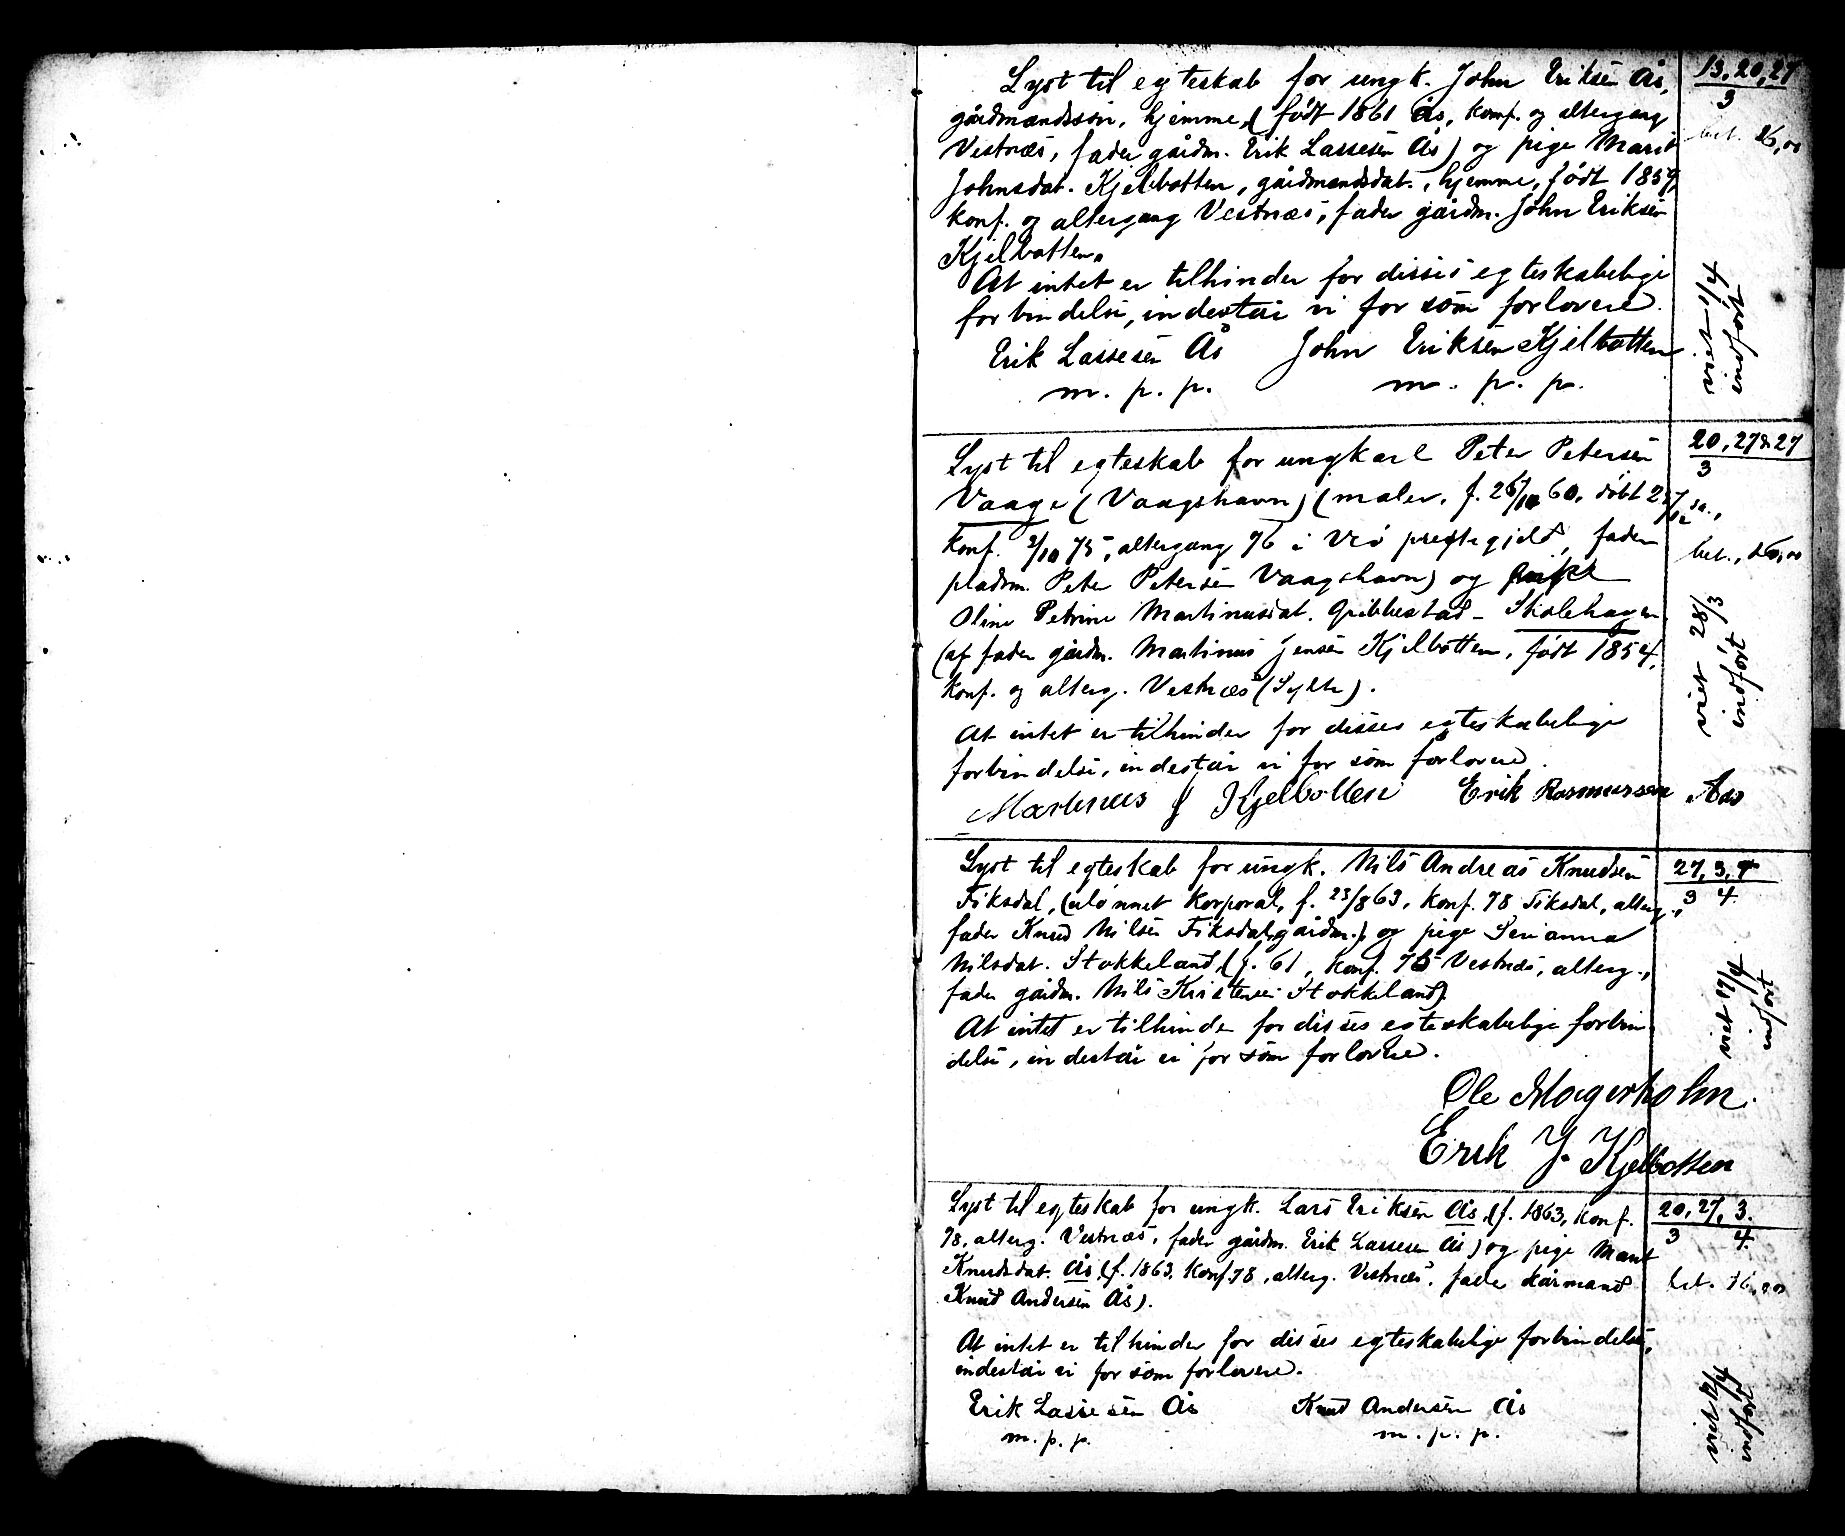 Lyst til egteskab for ungk. John Eriksen Ås,
gårdmandssøn, hjemme, (født 1861 Ås, konf. og altergang
Vestnæs, fader gårdm. Erik Lassesen Ås) og pige Marit
Johnsdat. Kjelbotten, gårdmandsdat., hjemme, født 1859,
konf. og altergang Vestnæs, fader gårdm. John Eriksen
Kjelbotten.
At intet er tilhinder for disses egteskabelige
forbindelse, indestår vi for som forlovere.
Erik Lassesen Ås John Eriksen Kjelbotten
m. p. p. m. p. p.
13, 20, 27
3
bet.
viet 1/4
indført
Lyst til egteskab for ungkarl Peter Petersen
Vaage (Vaagshavn) (maler, f. 26/10 60, døbt
konf. 3/10 75, altergang 76 i Veø prestegjeld, fader
pladsm. Peter Petersen Vaagshavn) og
Oline Petrine Martinusdat. Gribbestad - Skolehagen
(af fader gårdm. Martinus Jensen Kjelbotten, født 1854,
konf. og alterg. Vestnæs (Sylte).
At intet er tilhinder for disses egteskabelige
forbindelse, indestår vi for som forlovere.
Martinus J Kjelbotten Erik Rasmussen Aas
20, 27 & 27
3
bet.,
viet 28/3
indført
Lyst til egteskab for ungk. Nils Andreas Knudsen
Fiksdal, (ulønnet korporal, f. 23/8 63, konf. 78 Fiksdal, alterg.,
fader Knud Nilsen Fiksdal, gårdm.) og pige Serianna
Nilsdat. Stokkeland (f. 61, konf. 75 Vestnæs, alterg.,
fader gårdm. Nils Kristensen Stokkeland).
At intet er tilhinder for disses egteskabelige forbin-
delse, indestår vi for som forlovere.
Ole Magerholm.
Erik J. Kjelbotten
27, 3, 4
3 4
indført
Lyst til egteskab for ungk. Lars Eriksen Ås (f. 1863, konf.
78, alterg. Vestnæs, fader gårdm. Erik Lassesen Ås) og pige Marit
Knudsdat. Ås (f. 1863, konf. 78, alterg. Vestnæs, fader kårmand
Knud Andersen Ås).
At intet er tilhinder for disses egteskabelige forbindelse,
indestår vi for som forlovere.
Erik Lassesen Ås Knud Andersen Ås
m. p. p. m. p. p.
20, 27, 3.
3 4.
bet.
viet
indført